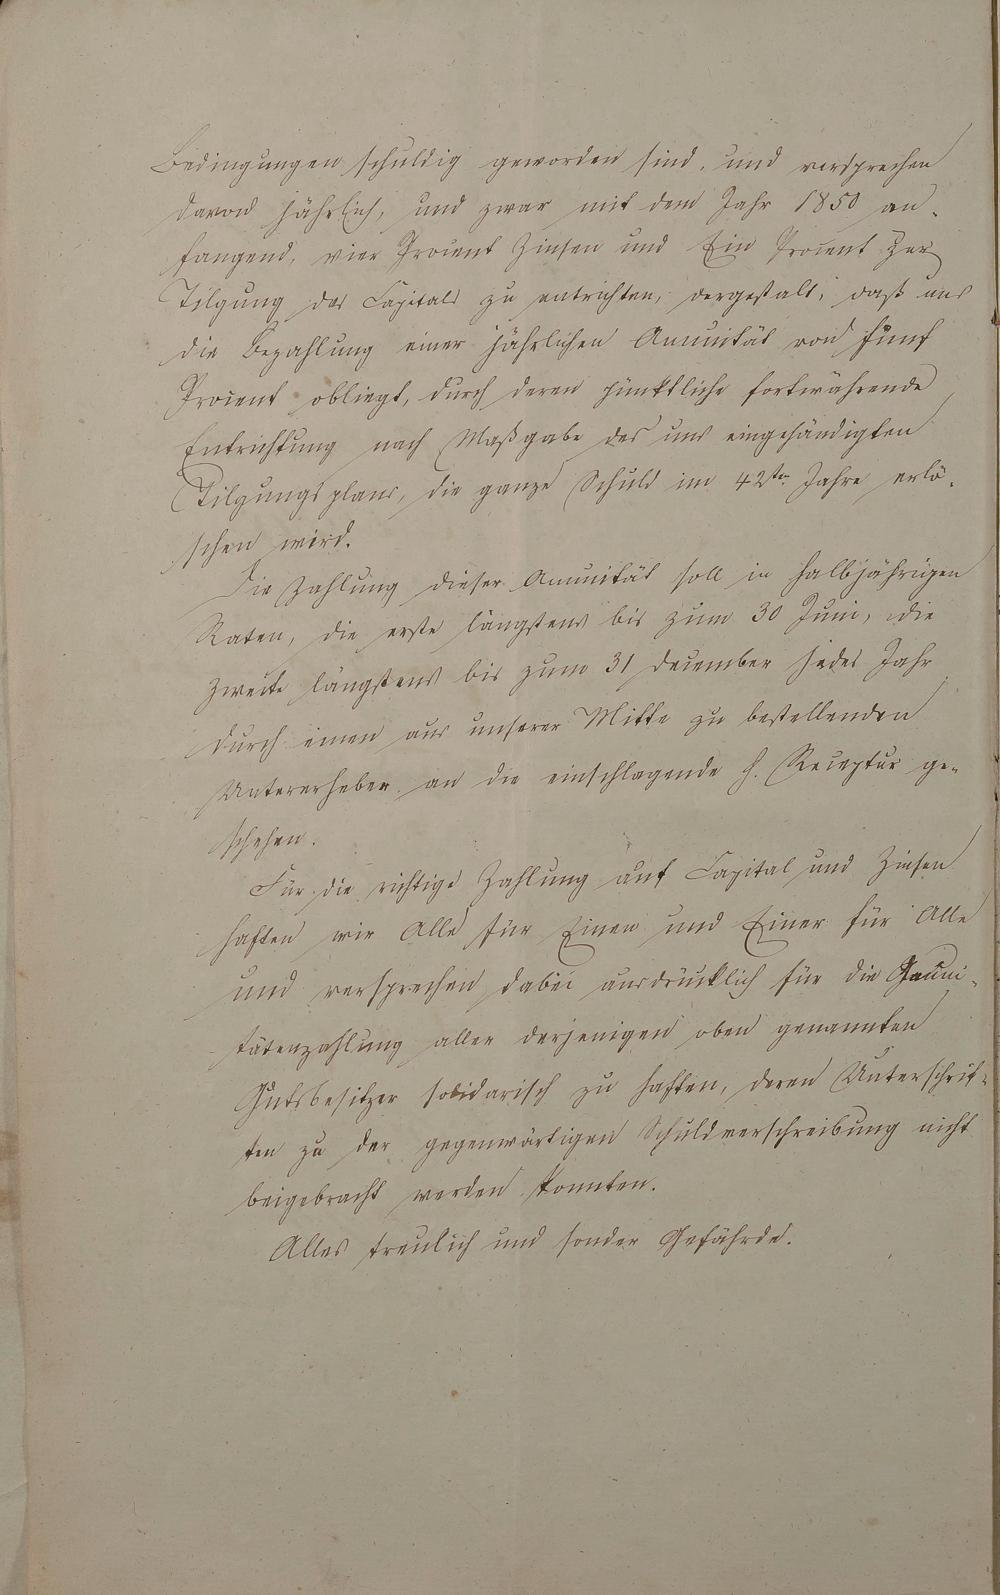 Bedingungen schuldig geworden sind, und versprechen
davon jährlich, und zwar mit dem Jahr 1850 an-
fangend, vier Procent Zinsen und Ein Procent zur
Tilgung des Capitals zu entrichten, dergestalt, daß uns
die Bezahlung einer jährlichen Annuität von fünf
Procent obliegt, durch deren pünktliche fortwährende
Entrichtung nach Maßgabe des uns eingehändigten
Tilgungsplans, die ganze Schuld im 42ten Jahre erlö-
schen wird.
Die Zahlung dieser Annuität soll in halbjährigen
Raten, die erste längstens bis zum 30 Juni, die
zweite längstens bis zum 31 December jedes Jahr
durch einen aus unserer Mitte zu bestellenden
Untererheber an die einschlagende h. Receptur ge-
schehen.
Für die richtige Zahlung auf Capital und Zinsen
haften wir Alle für Einen und Einer für Alle
und versprechen dabei ausdrücklich für die
tätenzahlung aller derjenigen oben genannten
Gutsbesitzer solidarisch zu haften, deren Unterschrif-
ten zu der gegenwärtigen Schuldverschreibung nicht
beigebracht werden konnten.
Alles treulich und sonder Gefährde.